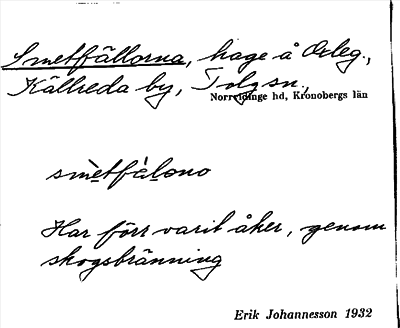 Smetfällorna, hage å Arleg.,
Källreda by, Tolg sn.
Norrvidinge hd, Kronobergs län
smètfàlono
Har förr varit åker, genom
skogsbränning
Erik Johannesson 1932